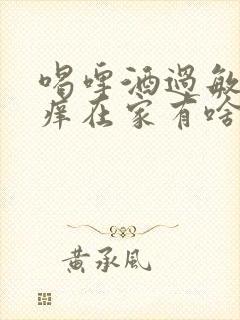 喝啤酒過敏
痒在家有啥
黄承风